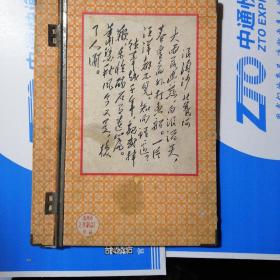 浪淘沙 北戴河
大雨落幽燕，白浪滔天，
秦皇岛外打鱼船。一片
汪洋都不见，知向谁边？
往事越千年，魏武挥
鞭，东临碣石有遗篇。
萧瑟秋风今又是，换
了人间。
中通快
ZTO EXPRESS
ZTO